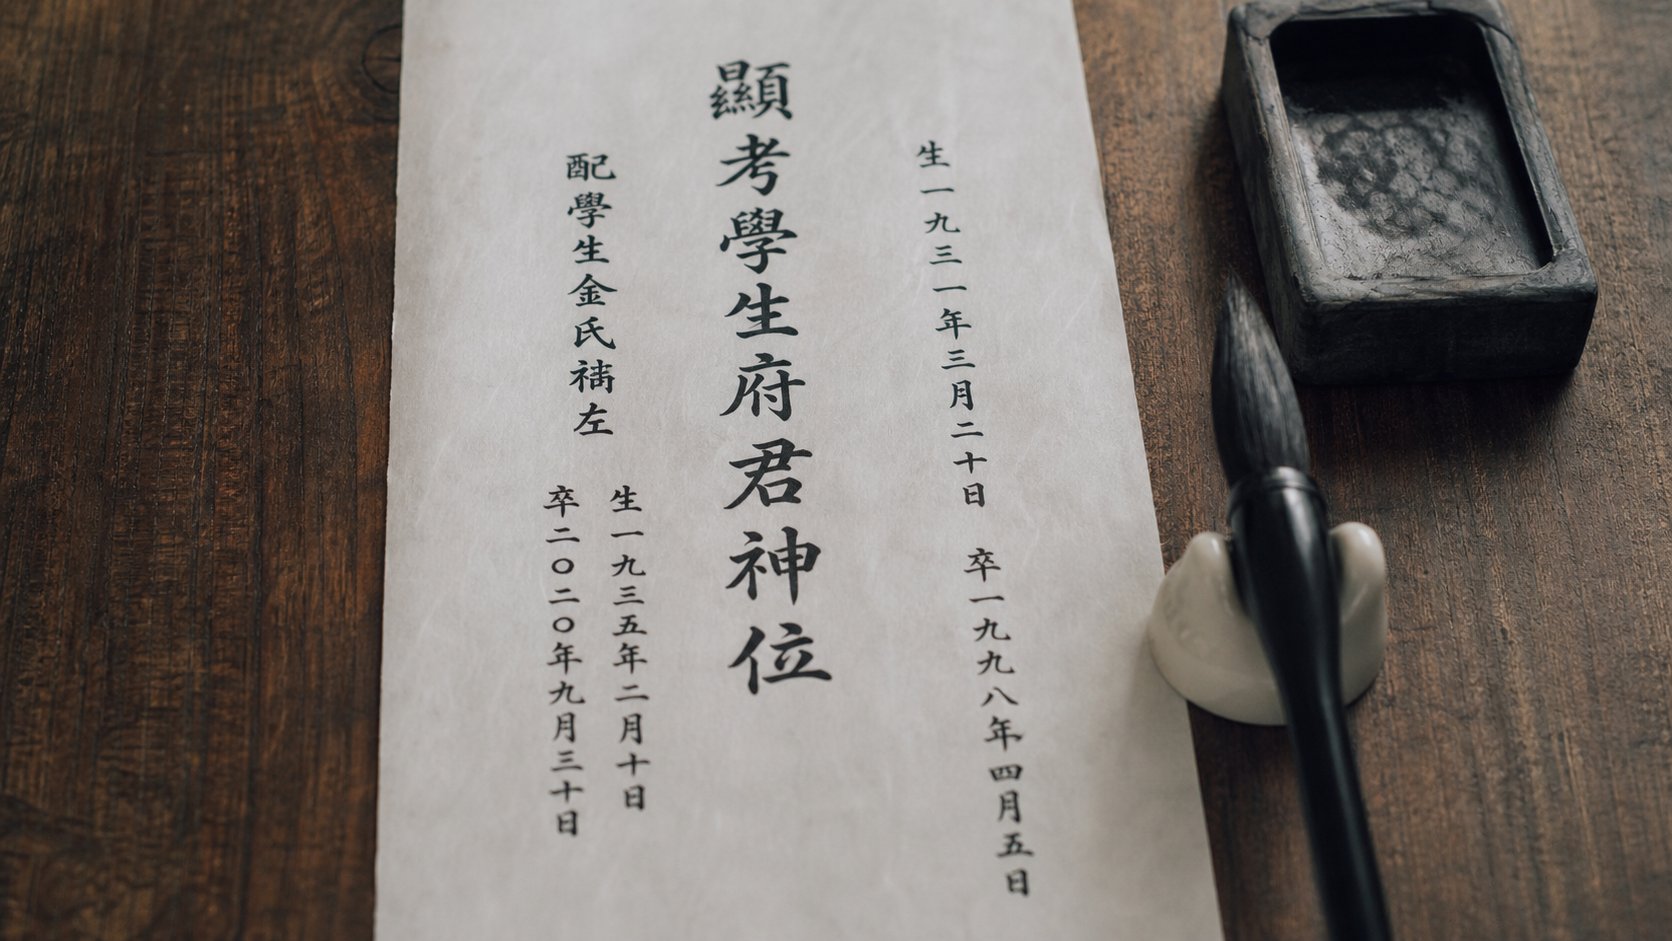 生一九三一年三月二十日 卒一九九八年四月五日
顯考學生府君神位
配學生金氏左
生一九三五年二月十日
卒二〇二〇年九月三十日